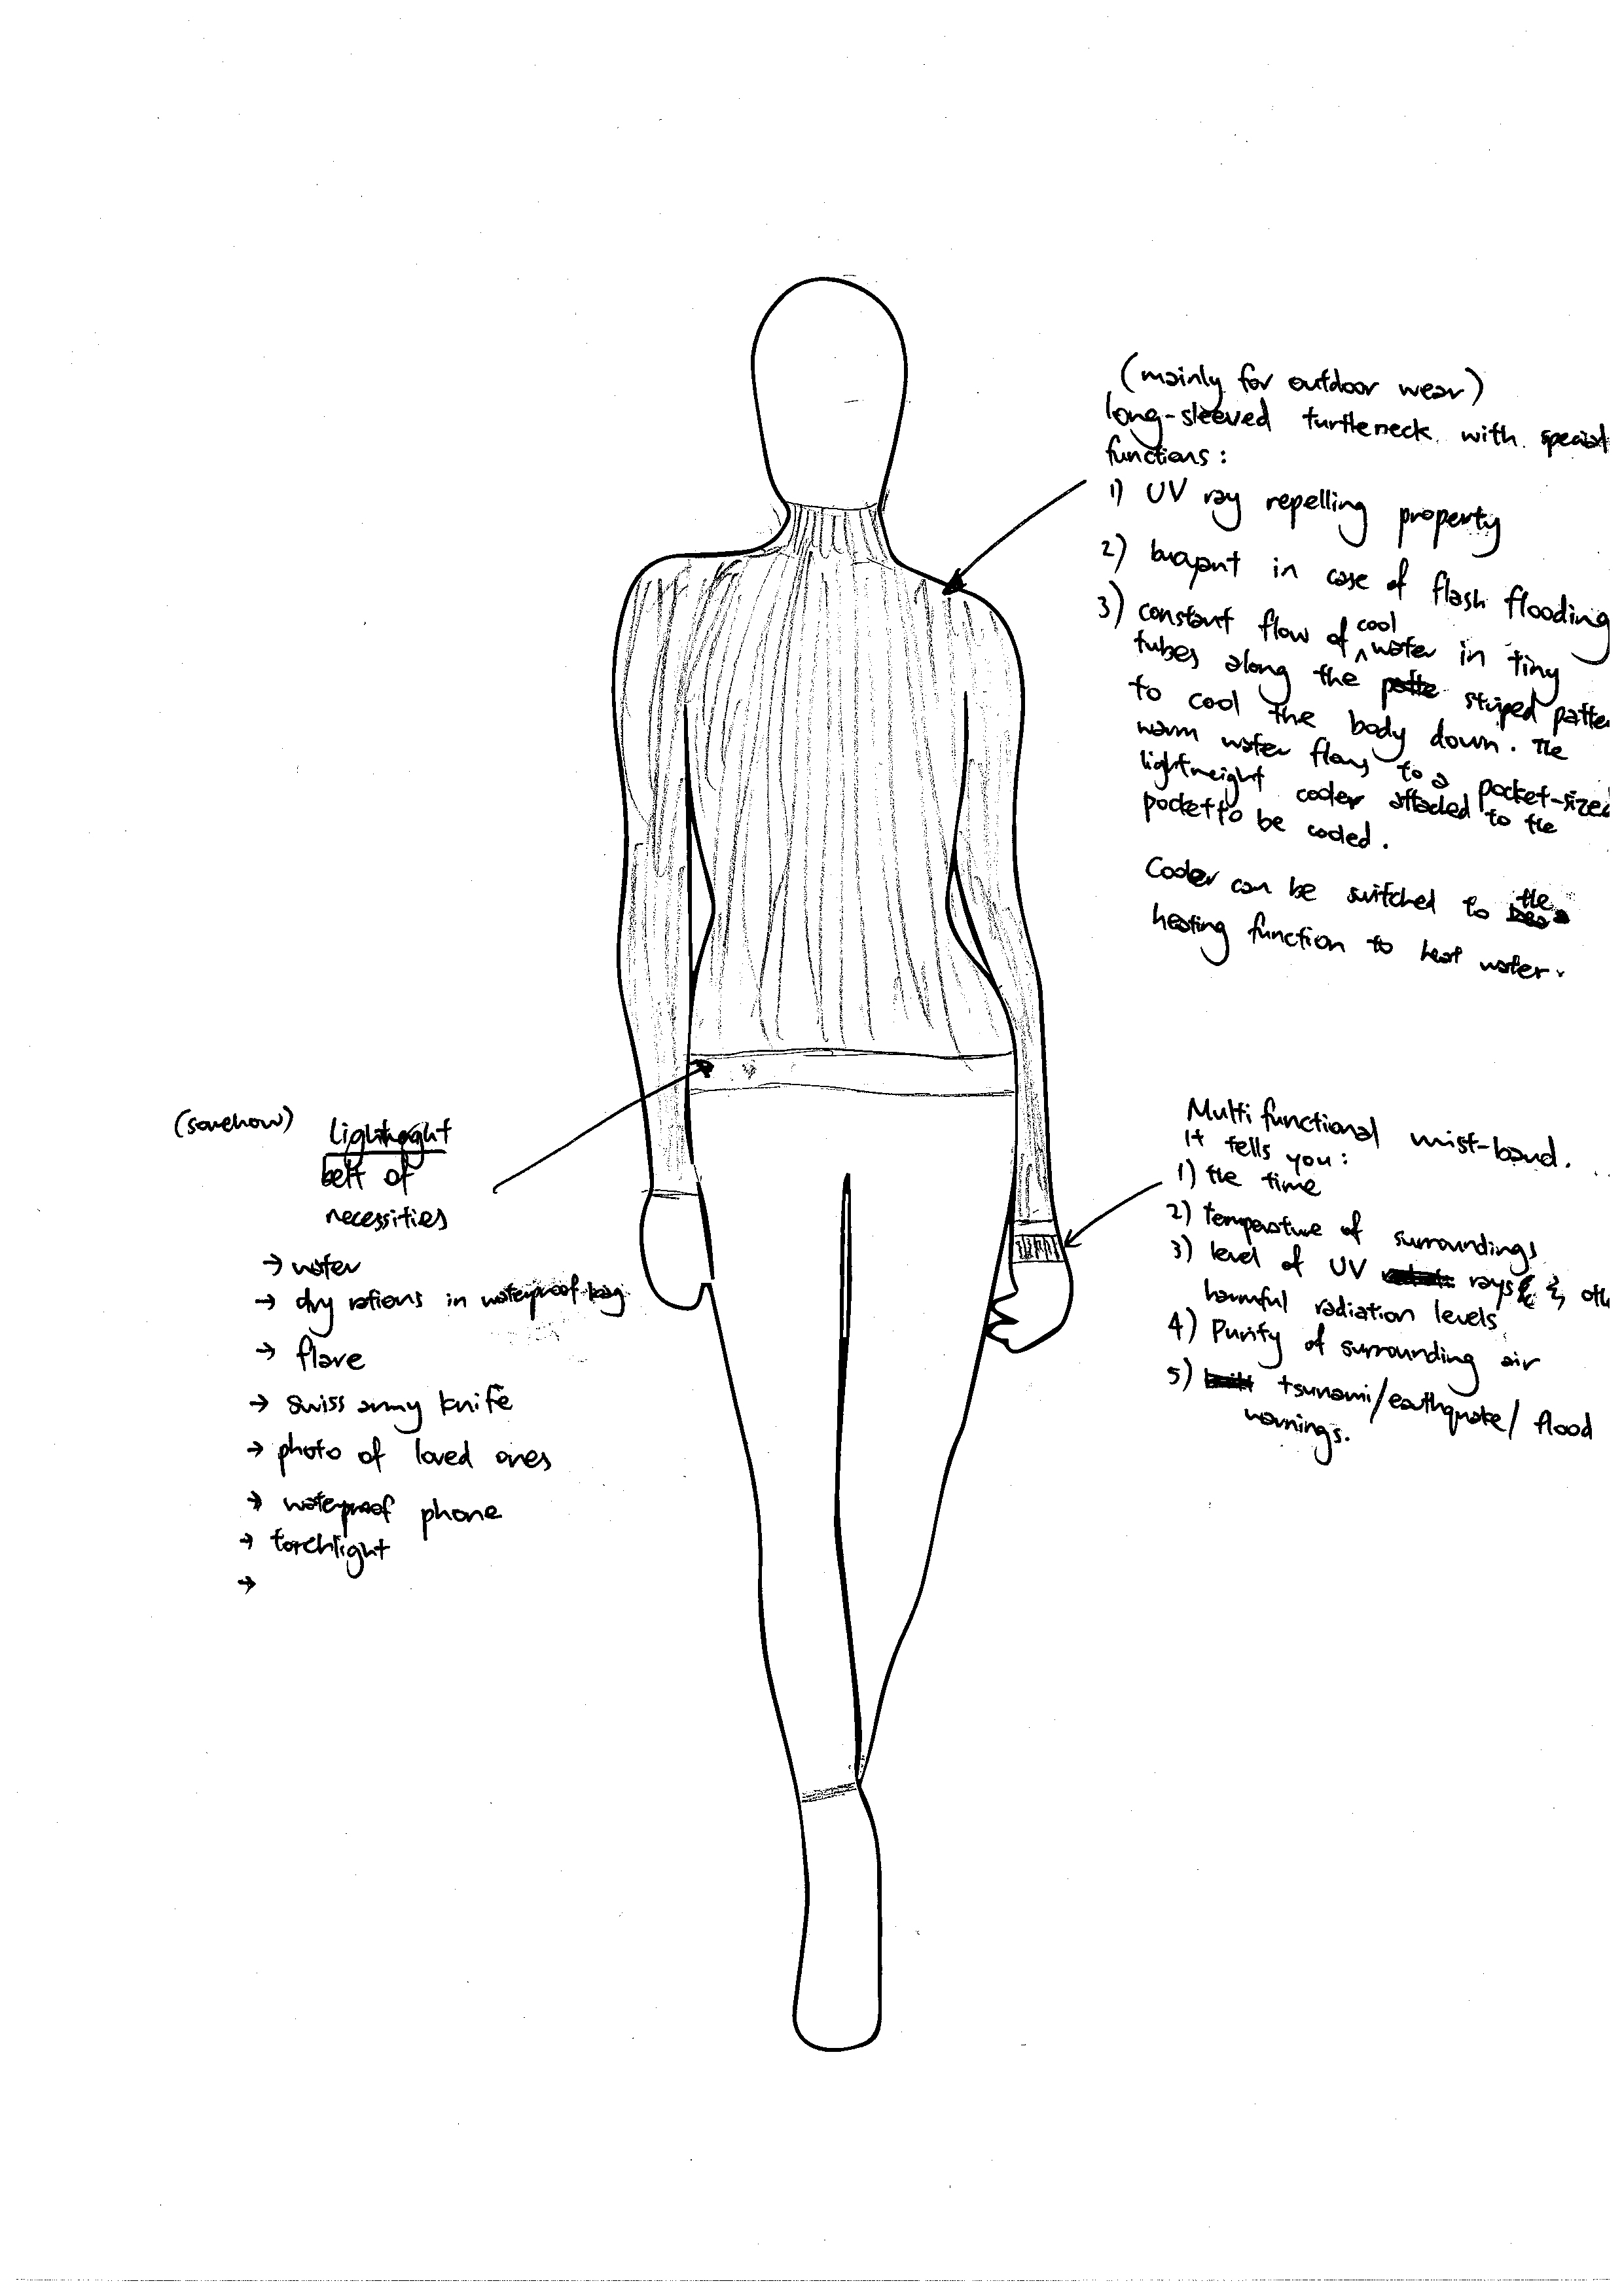 (mainly for outdoor wear)
long-sleeved turtleneck with special
functions:
1) UV ray repelling property
2) buoyant in case of flash flooding
3) constant flow of cool water in tiny
tubes along the striped patte
to cool the body down. The
warm water flows to a pocket-sized
lightweight cooler attached to the
pocket to be cooled.
Cooler can be switched to the
heating function to heat water.
(somehow) Lightweight
belt of
necessities
→ water
→ dry rations in waterproof bag
→ flare
→ swiss army knife
→ photo of loved ones
→ waterproof phone
→ torchlight
→
Multi functional wrist-band.
It tells you:
1) the time
2) temperature of surroundings
3) level of UV rays & oth
harmful radiation levels
4) Purity of surrounding air
5) tsunami/earthquake/flood
warnings.